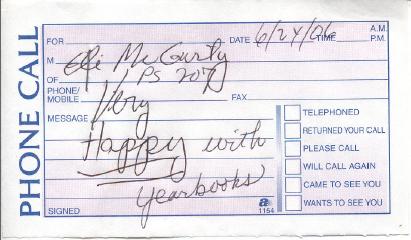 PHONE CALL
FOR DATE 6/24/06 TIME A.M. P.M.
M Elli McCurty
OF / PS 207
PHONE/
MOBILE FAX
MESSAGE Very
Happy with
yearbooks
SIGNED
TELEPHONED
RETURNED YOUR CALL
PLEASE CALL
WILL CALL AGAIN
CAME TO SEE YOU
WANTS TO SEE YOU
a
1154